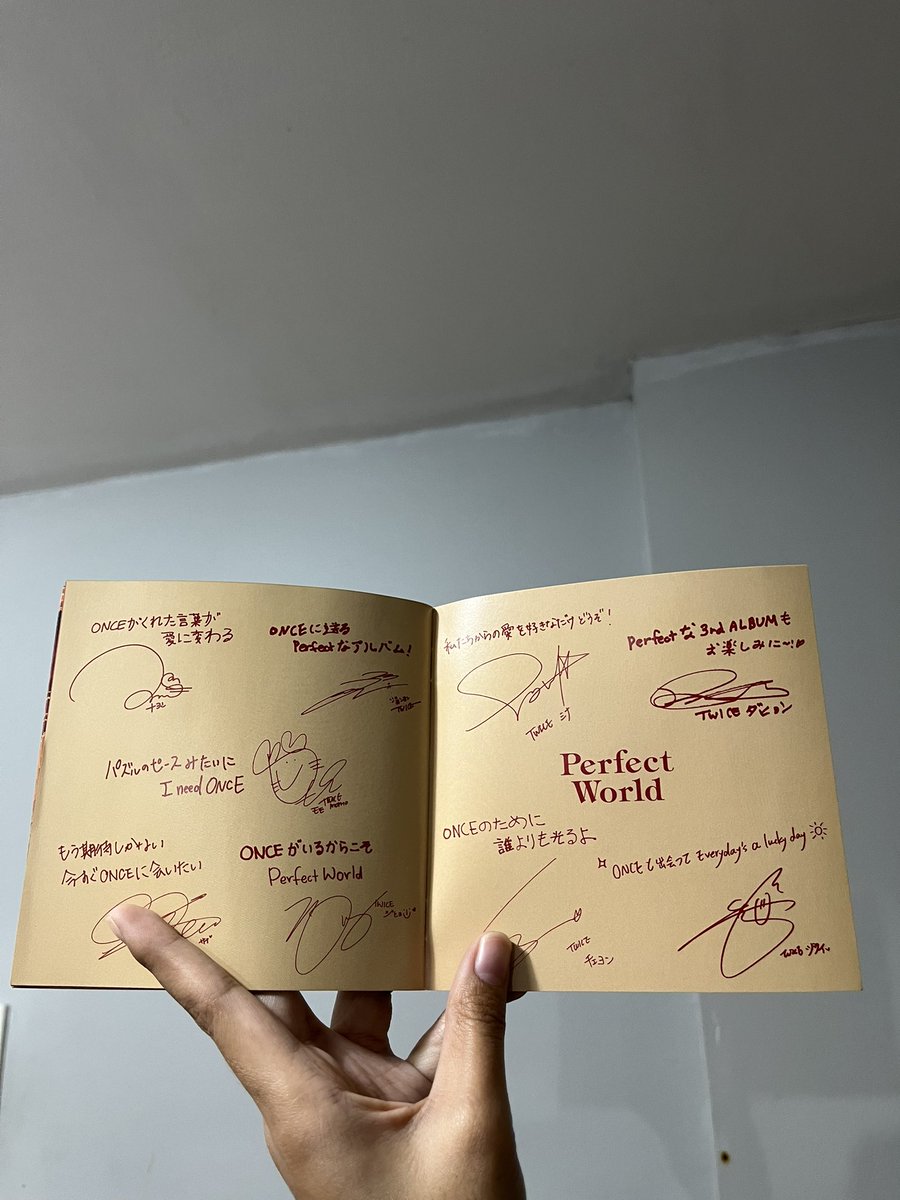 ONCEがくれた言葉が
愛に変わる
ナヨン
ONCEに送る
Perfectなアルバム!
ジョンヨン
TWICE
パズルのピースみたいに
I need ONCE
TWICE
モモ momo
もう期待しかない
今すぐONCEに会いたい
サナ
ONCEがいるからこそ
Perfect World
TWICE
ジヒョ
私たちからの愛を好きなだけどうぞ!
TWICE ミナ
Perfectな3rd ALBUMも
お楽しみに~!♡
TWICE ダヒョン
Perfect
World
ONCEのために
誰よりも光るよ
TWICE
チェヨン
ONCEと出会って Everyday's a lucky day
TWICE ツウィ